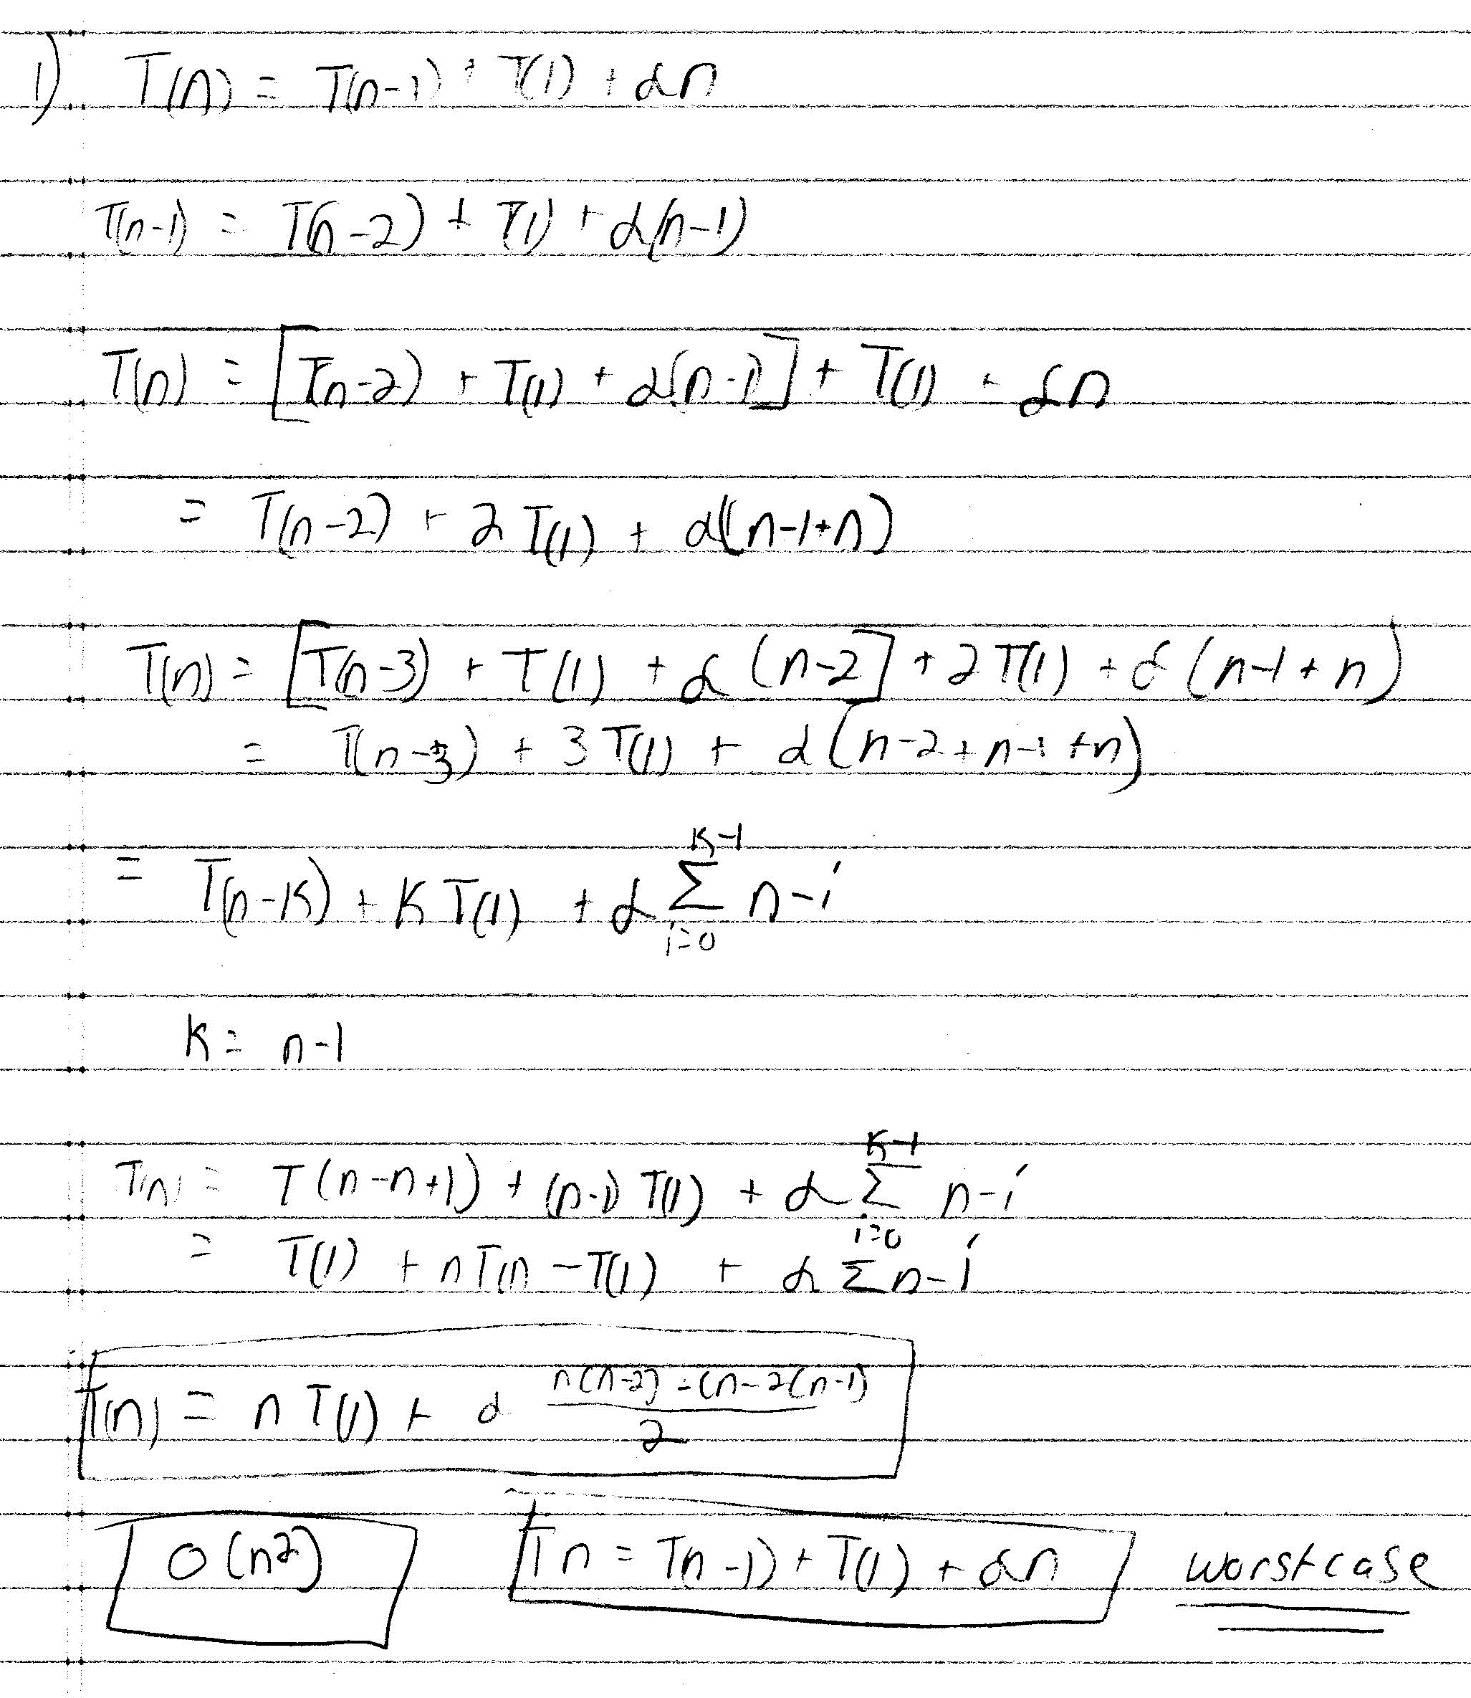 1) T(n) = T(n-1) + T(1) + αn
T(n-1) = T(n-2) + T(1) + α(n-1)
T(n) = [T(n-2) + T(1) + α(n-1)] + T(1) + αn
= T(n-2) + 2T(1) + α(n-1+n)
T(n) = [T(n-3) + T(1) + α(n-2] + 2T(1) + α(n-1+n)
= T(n-3) + 3T(1) + α(n-2+n-1+n)
= T(n-K) + KT(1) + α Σ_{i=0}^{K-1} n-i
K = n-1
T(n) = T(n-n+1) + (n-1)T(1) + α Σ_{i=0}^{K-1} n-i
= T(1) + nT(1) - T(1) + α Σ n-i
T(n) = nT(1) + α (n(n-2) - (n-2(n-1))/2
O(n²) Tn = T(n-1) + T(1) + αn worstcase